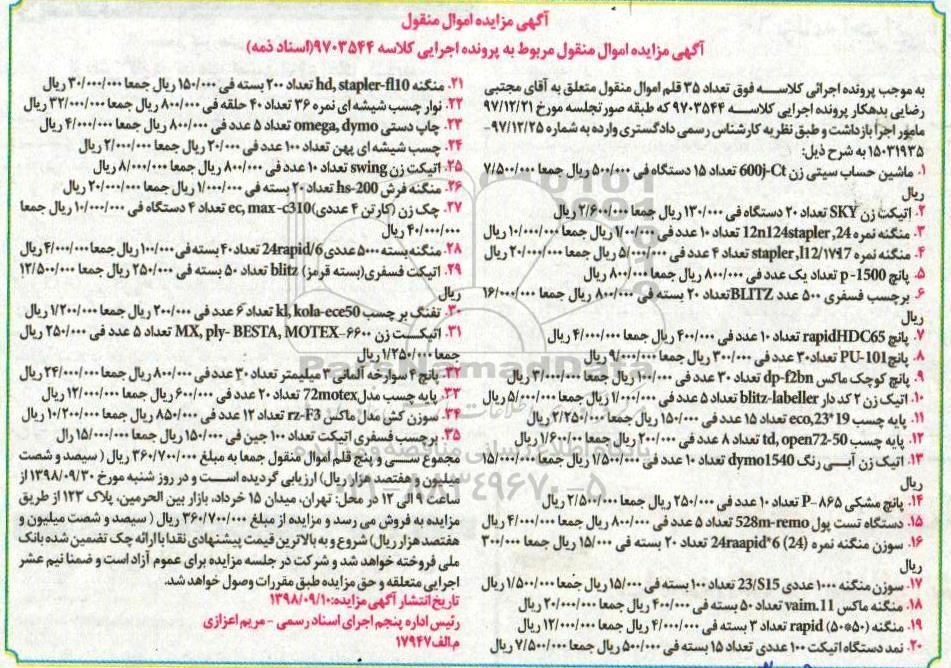 آگهی مزایده اموال منقول
آگهی مزایده اموال منقول مربوط به پرونده اجرایی کلاسه ۹۷۰۳۵۴۴(اسناد ذمه)
به موجب پرونده اجرائی کلاسه فوق تعداد ۳۵ قلم اموال منقول متعلق به آقای مجتبی
رضایی بدهکار پرونده اجرایی کلاسه ۹۷۰۳۵۴۴ که طبقه صورتجلسه مورخ ۹۷/۱۲/۲۱
مامور اجرا بازداشت و طبق نظریه کارشناس رسمی دادگستری وارده به شماره ۹۷/۱۲/۲۵-
۱۵۰۳۱۹۳۵ به شرح ذیل:
۱. ماشین حساب سیتی زن 600j-Ct تعداد ۱۵ دستگاه فی ۵۰۰/۰۰۰ ریال جمعا ۷/۵۰۰/۰۰۰
ریال
۲. اتیکت زن SKY تعداد ۲۰ دستگاه فی ۱۳۰/۰۰۰ ریال جمعا ۲/۶۰۰/۰۰۰ ریال
۳. منگنه نمره 24, 12n124stapler تعداد ۱۰ عدد فی ۱/۰۰۰/۰۰۰ ریال جمعا ۱۰/۰۰۰/۰۰۰ ریال
۴. منگنه نمره stapler ,l12/1۷17 تعداد ۴ عدد فی ۵/۰۰۰/۰۰۰ ریال جمعا ۲۰/۰۰۰/۰۰۰ ریال
۵. پانچ p-1500 تعداد یک عدد فی ۸۰۰/۰۰۰ ریال جمعا ۸۰۰/۰۰۰ ریال
۶. برچسب فسفری ۵۰۰ عدد BLITZ تعداد ۲۰ بسته فی ۸۰۰/۰۰۰ ریال جمعا ۱۶/۰۰۰/۰۰۰
ریال
۷. پانچ rapidHDC65 تعداد ۱۰ عدد فی ۴۰۰/۰۰۰ ریال جمعا ۴/۰۰۰/۰۰۰ ریال
۸. پانچ PU-101 تعداد ۳۰ عدد فی ۳۰۰/۰۰۰ ریال جمعا ۹/۰۰۰/۰۰۰ ریال
۹. پانچ کوچک ماکس dp-f2bn تعداد ۳۰ عدد فی ۱۰۰/۰۰۰ ریال جمعا ۳/۰۰۰/۰۰۰ ریال
۱۰. اتیک زن ۲ کد دار blitz-labeller تعداد ۵ عدد فی ۱/۰۰۰/۰۰۰ ریال جمعا ۵/۰۰۰/۰۰۰ ریال
۱۱. پایه چسب 19*eco,23 تعداد ۱۵ عدد فی ۱۵۰/۰۰۰ ریال جمعا ۲/۲۵۰/۰۰۰ ریال
۱۲. پایه چسب td, open72-50 تعداد ۸ عدد فی ۲۰۰/۰۰۰ ریال جمعا ۱/۶۰۰/۰۰ ریال
۱۳. اتیک زن آبی رنگ dymo1540 تعداد ۱۰ عدد فی ۱/۵۰۰/۰۰۰ ریال جمعا ۱۵/۰۰۰/۰۰۰
ریال
۱۴. پانچ مشکی P-۸۶۵ تعداد ۱۰ عدد فی ۲۵۰/۰۰۰ ریال جمعا ۲/۵۰۰/۰۰۰ ریال
۱۵. دستگاه تست پول 528m-remo تعداد ۵ عدد فی ۸۰۰/۰۰۰ ریال جمعا ۴/۰۰۰/۰۰۰ ریال
۱۶. سوزن منگنه نمره (24) 6*24raapid تعداد ۲۰ بسته فی ۱۵/۰۰۰ ریال جمعا ۳۰۰/۰۰۰
ریال
۱۷. سوزن منگنه ۱۰۰۰ عددی 23/S15 تعداد ۱۰۰ بسته فی ۱۵/۰۰۰ ریال جمعا ۱/۵۰۰/۰۰۰ ریال
۱۸. منگنه ماکس vaim.11 تعداد ۵۰ بسته فی ۴۰۰/۰۰۰ ریال جمعا ۲۰/۰۰۰/۰۰۰ ریال
۱۹. منگنه (۵۰*۵۰) rapid تعداد ۳ بسته فی ۴/۰۰۰/۰۰۰ ریال جمعا ۱۲/۰۰۰/۰۰۰ ریال
۲۰. نمد دستگاه اتیکت ۱۰۰ عددی تعداد ۱۵ بسته فی ۵۰۰/۰۰۰ ریال جمعا ۷/۵۰۰/۰۰۰ ریال
۲۱. منگنه hd, stapler-fl10 تعداد ۲۰۰ بسته فی ۱۵۰/۰۰۰ ریال جمعا ۳۰/۰۰۰/۰۰۰ ریال
۲۲. نوار چسب شیشه ای نمره ۳۶ تعداد ۴۰ حلقه فی ۸۰۰/۰۰۰ ریال جمعا ۳۲/۰۰۰/۰۰۰ ریال
۲۳. چاپ دستی omega, dymo تعداد ۵ عدد فی ۸۰۰/۰۰۰ ریال جمعا ۴/۰۰۰/۰۰۰ ریال
۲۴. چسب شیشه ای پهن تعداد ۱۰۰ عدد فی ۲۰/۰۰۰ ریال جمعا ۲/۰۰۰/۰۰۰ ریال
۲۵. اتیکت زن swing تعداد ۱۰ عدد فی ۸۰۰/۰۰۰ ریال جمعا ۸/۰۰۰/۰۰۰ ریال
۲۶. منگنه فرش hs-200 تعداد ۲۰ بسته فی ۱/۰۰۰/۰۰۰ ریال جمعا ۲۰/۰۰۰/۰۰۰ ریال
۲۷. چک زن (کارتن ۴ عددی) ec, max -c310 تعداد ۴ دستگاه فی ۱۰/۰۰۰/۰۰۰ ریال جمعا
۴۰/۰۰۰/۰۰۰ ریال
۲۸. منگنه بسته ۵۰۰۰ عددی 24rapid/6 تعداد ۴۰ بسته فی ۱۰۰/۰۰۰ ریال جمعا ۴/۰۰۰/۰۰۰ ریال
۲۹. اتیکت فسفری(بسته قرمز) blitz تعداد ۵۰ بسته فی ۲۵۰/۰۰۰ ریال جمعا ۱۲/۵۰۰/۰۰۰
ریال
۳۰. تفنگ بر چسب kl, kola-ece50 تعداد ۶ عدد فی ۲۰۰/۰۰۰ ریال جمعا ۱/۲۰۰/۰۰۰ ریال
۳۱. اتیکت زن MX, ply- BESTA, MOTEX-۶۶۰۰ تعداد ۵ عدد فی ۲۵۰/۰۰۰ ریال
جمعا ۱/۲۵۰/۰۰۰ ریال
۳۲. پانچ ۴ سوارخه آلمانی ۳ میلیمتر تعداد ۳۰ عدد فی ۸۰۰/۰۰۰ ریال جمعا ۲۴/۰۰۰/۰۰۰ ریال
۳۳. پایه چسب مدل 72motex تعداد ۲۰ عدد فی ۶۰۰/۰۰۰ ریال جمعا ۱۲/۰۰۰/۰۰۰ ریال
۳۴. سوزن کش مدل ماکس rz-F3 تعداد ۱۲ عدد فی ۸۵۰/۰۰۰ ریال جمعا ۱۰/۲۰۰/۰۰۰ ریال
۳۵. برچسب فسفری اتیکت تعداد ۱۰۰ جین فی ۱۵۰/۰۰۰ ریال جمعا ۱۵/۰۰۰/۰۰۰ ریال
مجموع سی و پنج قلم اموال منقول جمعا به مبلغ ۳۶۰/۷۰۰/۰۰۰ ریال ( سیصد و شصت
میلیون و هفتصد هزار ریال) ارزیابی گردیده است و در روز شنبه مورخ ۱۳۹۸/۰۹/۳۰ از
ساعت ۹ الی ۱۲ در محل: تهران، میدان ۱۵ خرداد، بازار بین الحرمین، پلاک ۱۲۳ از طریق
مزایده به فروش می رسد و مزایده از مبلغ ۳۶۰/۷۰۰/۰۰۰ ریال ( سیصد و شصت میلیون و
هفتصد هزار ریال) شروع و به بالاترین قیمت پیشنهادی نقدا با ارائه چک تضمین شده بانک
ملی فروخته خواهد شد و شرکت در جلسه مزایده برای عموم آزاد است و ضمنا نیم عشر
اجرایی متعلقه و حق مزایده طبق مقررات وصول خواهد شد.
تاریخ انتشار آگهی مزایده: ۱۳۹۸/۰۹/۱۰
رئیس اداره پنجم اجرای اسناد رسمی - مریم اعزازی
م.الف ۱۷۹۴۷